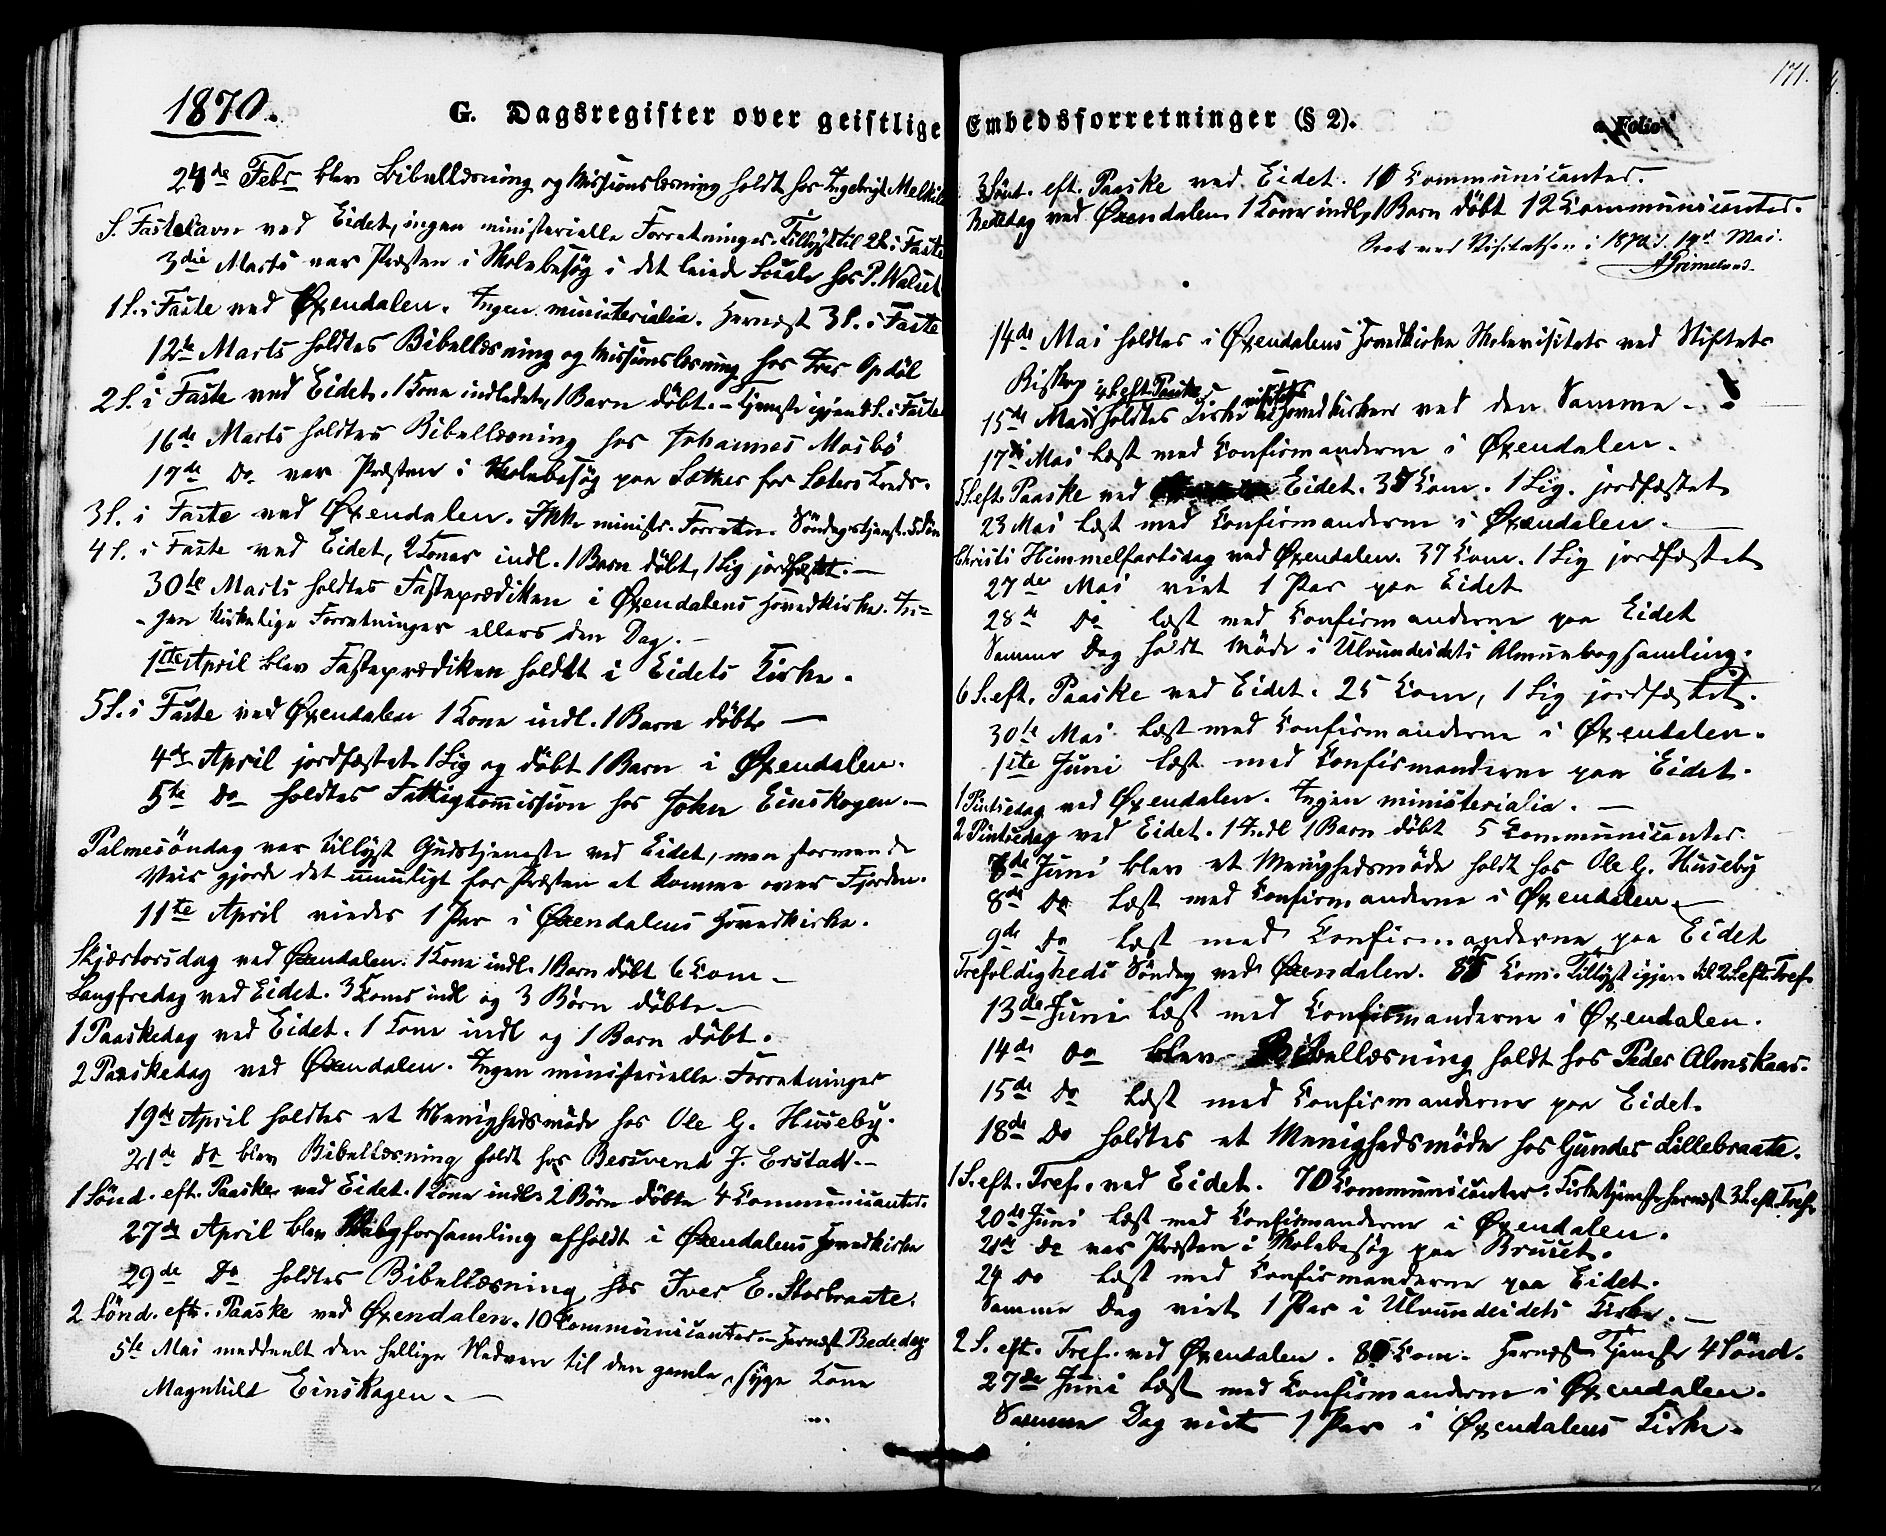 1870.
G. Dagsregister over geistlige
24de Febr blev Bibellæsning og Missionslæsning holdt hos Ingebrigt Melkild
S. Fastelavn ved Eidet, ingen ministerielle Forretninger. Tillyst til 2S. i Faste
3die Marts var Præsten i Skolebesøg i det leiede Locale hos P. Walset
1 S. i Faste ved Øxendalen. Ingen ministerialia. Hernæst 3 S. i Faste
12te Marts holdtes Bibellæsning og Missionslæsning hos Iver Opdøl
2 S. i Faste ved Eidet. 1 Kone indledet, 1 Barn döbt. – Tjeneste igjen 4 S. i Faste
16de Marts holdtes Bibellæsning hos Johannes Mosbø
17de Do var Præsten i Skolebesøg paa Sæther for Sæters Kreds.
3 S. i Faste ved Øxendalen. Ikke ministr. Forretn. Söndagstjenst. 5 Sön
4 S. i Faste ved Eidet, 2 Koner indl. 1 Barn döbt, 1 Lig jordfæstet. –
30te Marts holdtes Fasteprædiken i Øxendalens Hovedkirke. In-
-gen kirkelige Forretninger ellers den Dag. –
1ste April blev Fasteprædiken holdt i Eidets Kirke.
5 S. i Faste ved Øxendalen 1 Kone indl. 1 Barn döbt –
4de April jordfæstet 1 Lig og döbt 1 Barn i Øxendalen.
5te Do holdtes Fattigkommission hos John Einskogen. –
Palmesöndag var tillyst Gudstjeneste ved Eidet, men stormende
Veir gjorde det umuligt for Præsten at komme over Fjorden.
11te April viedes 1 Par i Øxendalens Hovedkirke.
Skjærtorsdag ved Øxendalen. 1 Kone indl. 1 Barn döbt 6 Com –
Langfredag ved Eidet. 3 Koner indl og 3 Börn döbte –
1 Paaskedag ved Eidet. 1 Kone indl og 1 Barn döbt.
2 Paaskedag ved Øxendalen. Ingen ministerielle Forretninger
19de April holdtes et Menighedsmöde hos Ole G. Huseby.
21de Do blev Bibellæsning holdt hos Bersvend J. Erstad. –
1 Sönd. eft. Paaske ved Eidet. 1 Kone indl. 2 Börn döbte 4 Communicanter.
27de April blev Valgforsamling afholdt i Øxendalens Hovedkirke
29de Do holdtes Bibellæsning hos Iver E. Storbraate.
2 Sönd. eft. Paaske ved Øxendalen. 10 Communicanter. – Hernæst Bededag
5te Mai meddeelt den hellige Nadvere til den gamle, syge Kone
Magnhild Einskogen. –
171.
Embedsforretninger (§ 2).
a Folio
3 Sönt. eft. Paaske ved Eidet. 10 Communicanter.
Bededag ved Øxendalen 1 Kone indl., 1 Barn döbt 12 Communicanter.
Seet ved Visitatsen i 1870 d. 14de Mai.
A Grimelund.
14de Mai holdtes i Øxendalens Hovedkirke Skolevisitats ved Stiftets
Biskop
4 S. eft. Paaske
visitats
15de Mai holdtes Kirke i Hovedkirken ved den Samme –
17de Mai læst med Confirmanderne i Øxendalen.
5 S. eft. Paaske ved Eidet. 37 Com. 1 Lig. jordfæstet
23 Mai læst med Confirmanderne i Øxendalen. –
Christi Himmelfartsdag ved Øxendalen. 37 Com. 1 Lig jordfæstet
27de Mai viet 1 Par paa Eidet
28de Do læst med Confirmanderne paa Eidet
Samme Dag holdt Möde i Ulvundeidets Almuebogsamling.
6 S. eft. Paaske ved Eidet. 25 Com, 1 Lig jordfæstet.
30te Mai læst med Confirmanderne i Øxendalen.
1ste Juni læst med Confirmanderne paa Eidet.
1 Pintsedag ved Øxendalen. Ingen ministerialia. –
2 Pintsedag ved Eidet. 1 Indl 1 Barn döbt 5 Communicanter.
7de Juni blev et Menighedsmöde holdt hos Ole G. Huseby
8de Do læst med Confirmanderne i Øxendalen. –
9de Do læst med Confirmanderne paa Eidet
Trefoldigheds Söndag ved Øxendalen. 85 Com. Tillyst igjen til 2 S. eft. Tref.
13de Juni læst med Confirmanderne i Øxendalen.
14de Do blev Bibellæsning holdt hos Peder Almskaar.
15de Do læst med Confirmanderne paa Eidet.
18de Do holdtes et Menighedsmöde hos Gunder Lillebraate.
1 S. eft. Tref. ved Eidet. 70 Communicanter. Kirketjenest hernæst 3 S. eft. Tref.
20de Juni læst med Confirmanderne i Øxendalen.
21de Do var Præsten i Skolebesøg paa Bruset.
24 Do læst med Confirmanderne paa Eidet.
Samme Dag viet 1 Par i Ulvundeidets Kirke. –
2 S. eft. Tref. ved Øxendalen. 80 Com. Hernæst Tjenest 4 Sönd.
27de Juni læst med Confirmanderne i Øxendalen.
Samme Dag viet 1 Par i Øxendalens Kirke.